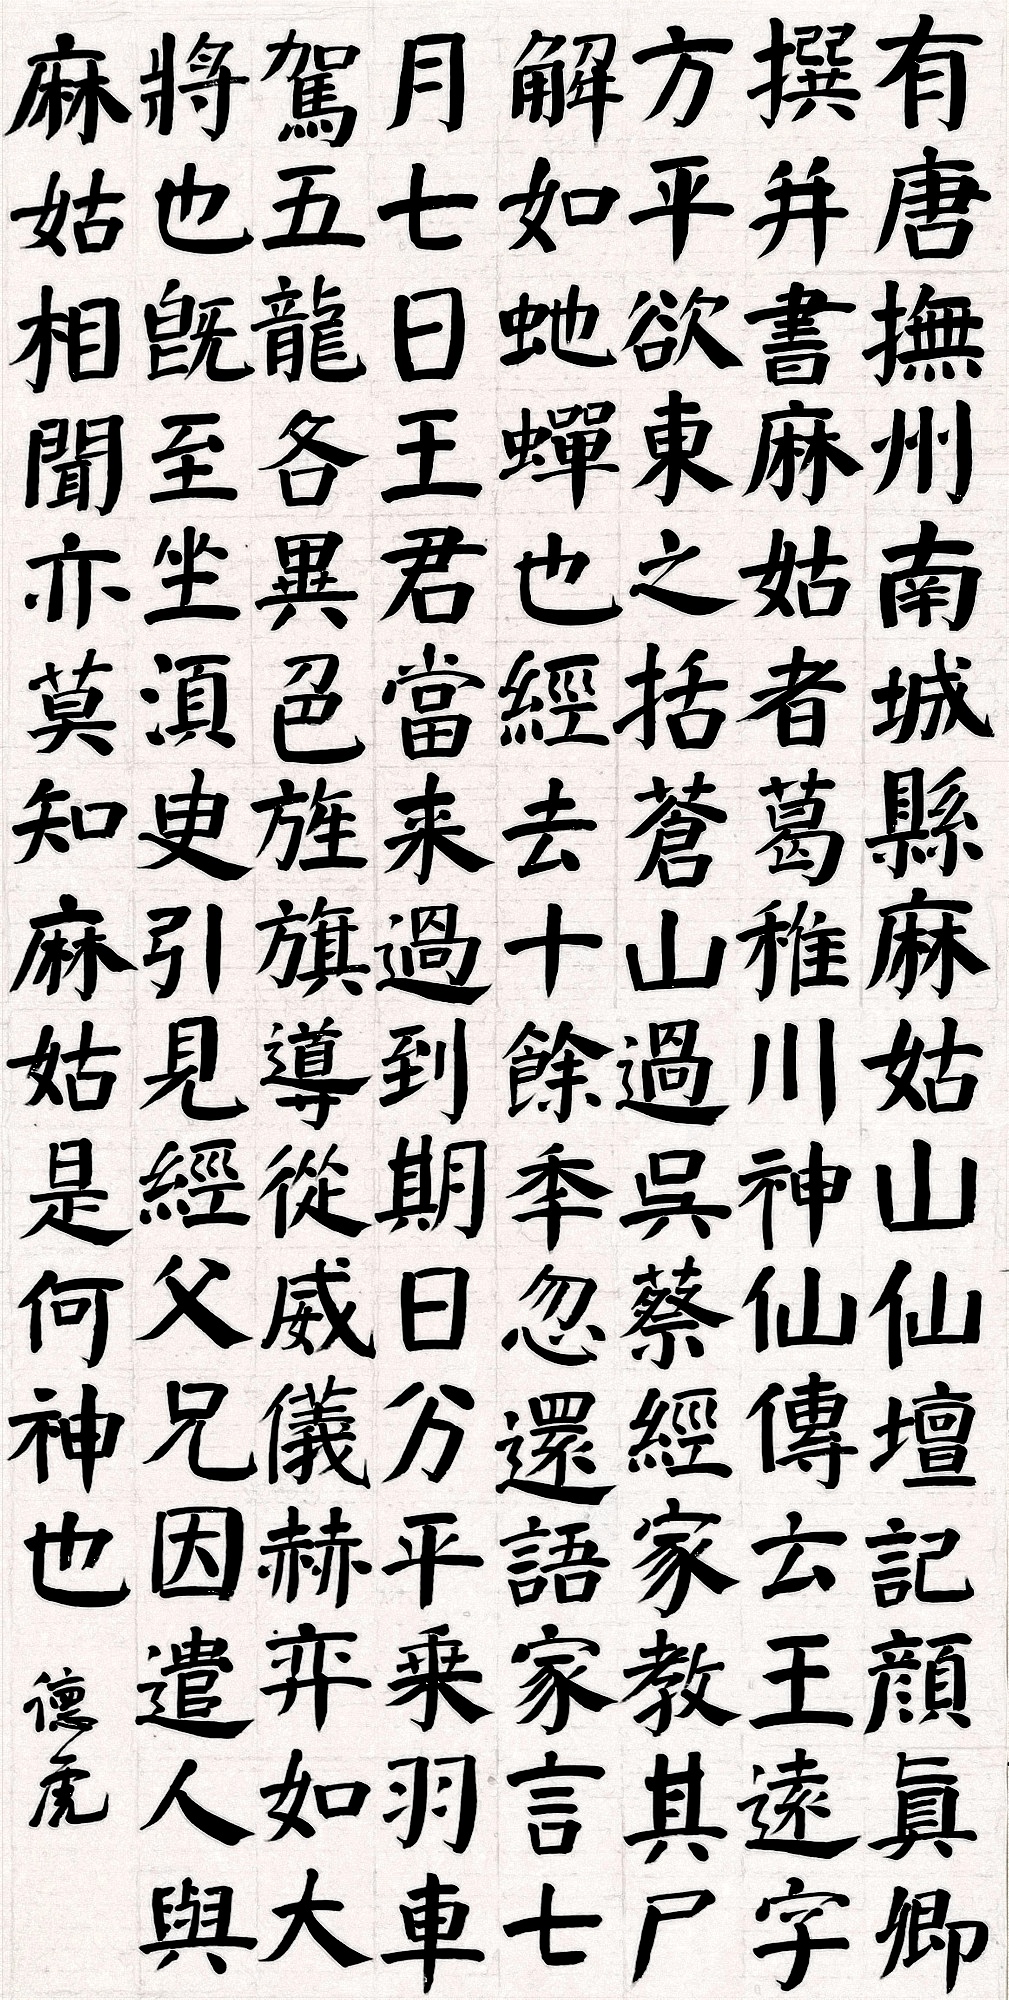 有唐撫州南城縣麻姑山仙壇記顔眞卿
撰并書麻姑者葛稚川神仙傳云王遠字
方平欲東之括蒼山過吳蔡經家教其尸
解如虵蟬也經去十餘秊忽還語家言七
月七日王君當来過到期日方平乗羽車
駕五龍各異色旌旗導從威儀赫弈如大
將也旣至坐須臾引見經父兄因遣人與
麻姑相聞亦莫知麻姑是何神也
德虎